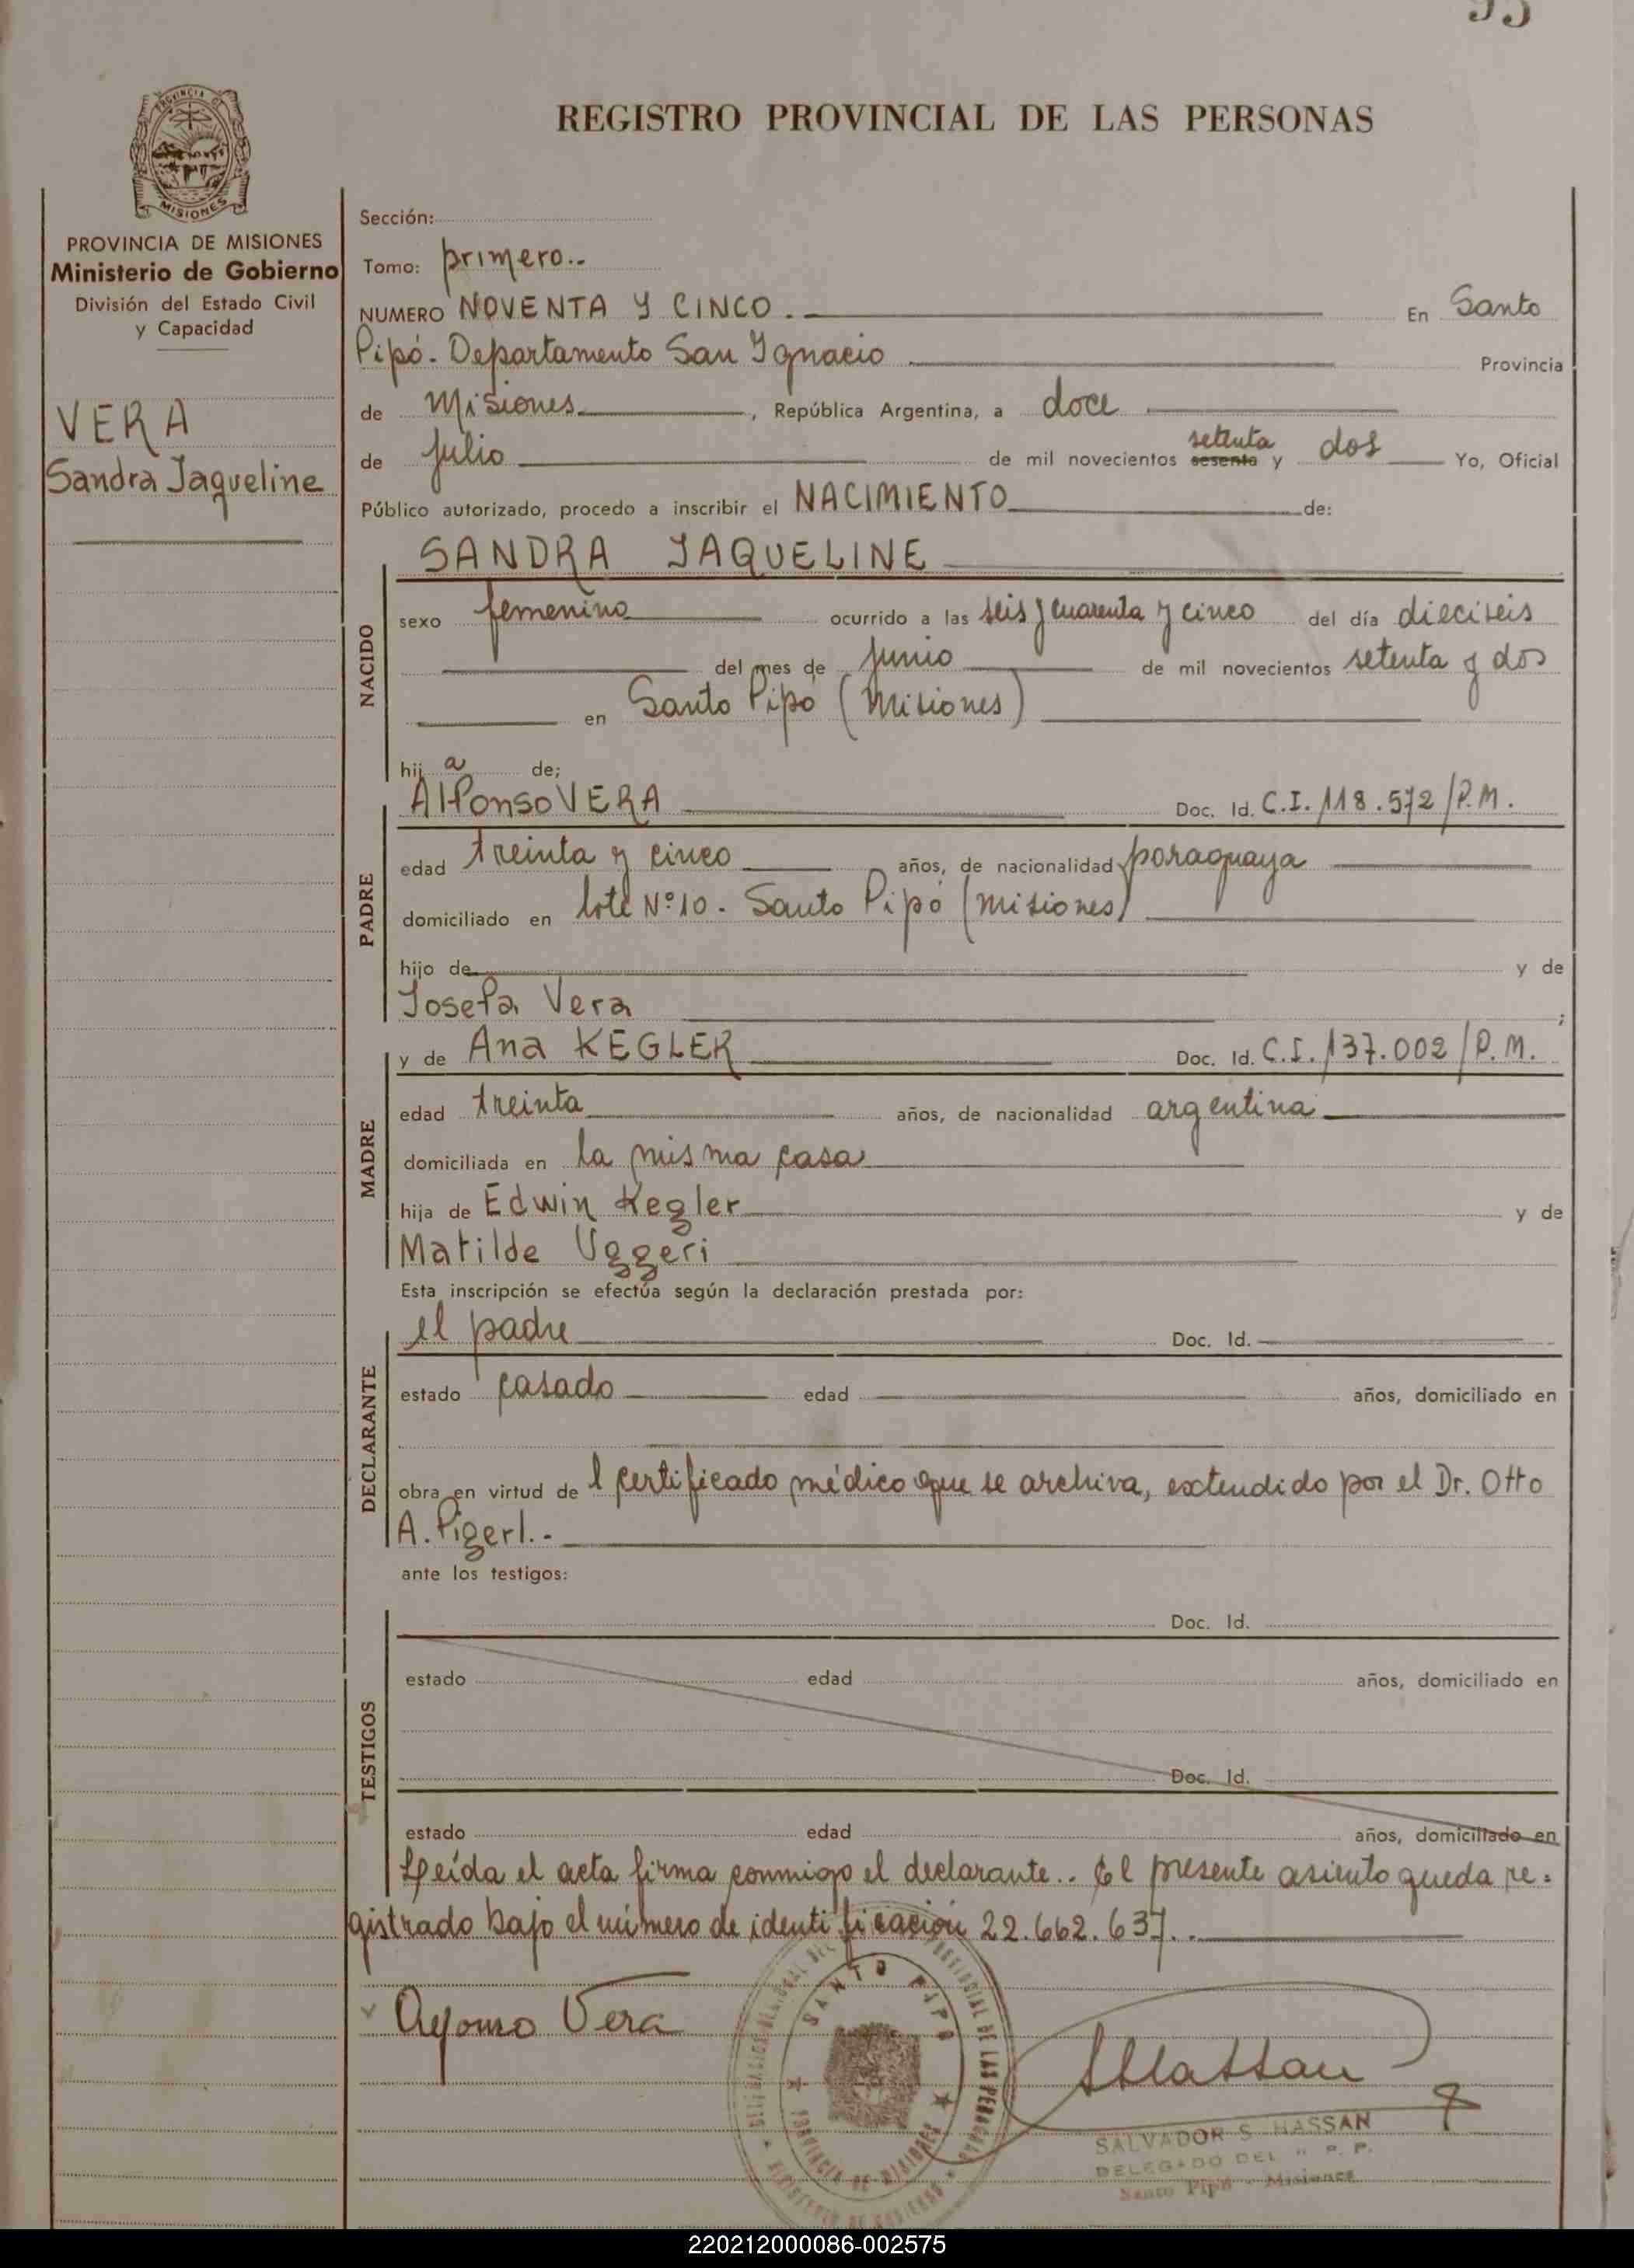 95
REGISTRO PROVINCIAL DE LAS PERSONAS
PROVINCIA DE
MISIONES
PROVINCIA DE MISIONES
Ministerio de Gobierno
División del Estado Civil
y Capacidad
VERA
Sandra Jaqueline
Sección:
Tomo: primero..
NUMERO NOVENTA Y CINCO. En Santo
Pipó. Departamento San Ignacio Provincia
de Misiones, República Argentina, a doce
setenta
de julio de mil novecientos sesenta y dos Yo, Oficial
Público autorizado, procedo a inscribir el NACIMIENTO de:
SANDRA JAQUELINE
NACIDO
sexo femenino ocurrido a las seis y cuarenta y cinco del día dieciseis
del mes de junio de mil novecientos setenta y dos
en Santo Pipó (Misiones)
hij a de;
PADRE
Alfonso VERA Doc. Id. C.I. 118.572/P.M.
edad treinta y cinco años, de nacionalidad paraguaya
domiciliado en lote Nº 10. Santo Pipó (Misiones)
hijo de y de
Josefa Vera ;
MADRE
y de Ana KEGLER Doc. Id. C.I. 137.002/P.M.
edad treinta años, de nacionalidad argentina
domiciliada en la misma casa
hija de Edwin Kegler y de
Matilde Uggeri
Esta inscripción se efectúa según la declaración prestada por:
DECLARANTE
el padre Doc. Id.
estado casado edad años, domiciliado en
obra en virtud de l certificado médico que se archiva, extendido por el Dr. Otto
A. Pigerl.-
ante los testigos:
TESTIGOS
Doc. Id.
estado edad años, domiciliado en
Doc. Id.
estado edad años, domiciliado en
Leída el acta firma conmigo el declarante.. El presente asiento queda re-
gistrado bajo el número de identificación 22.662.637..
Alfonso Vera
SANTO PIPO
PROVINCIAL DE LAS PERSONAS
PROVINCIA DE MISIONES
MINISTERIO DE GOBIERNO
SHassan
SALVADOR S. HASSAN
DELEGADO DEL " P. P.
Santo Pipó - Misiones
220212000086-002575